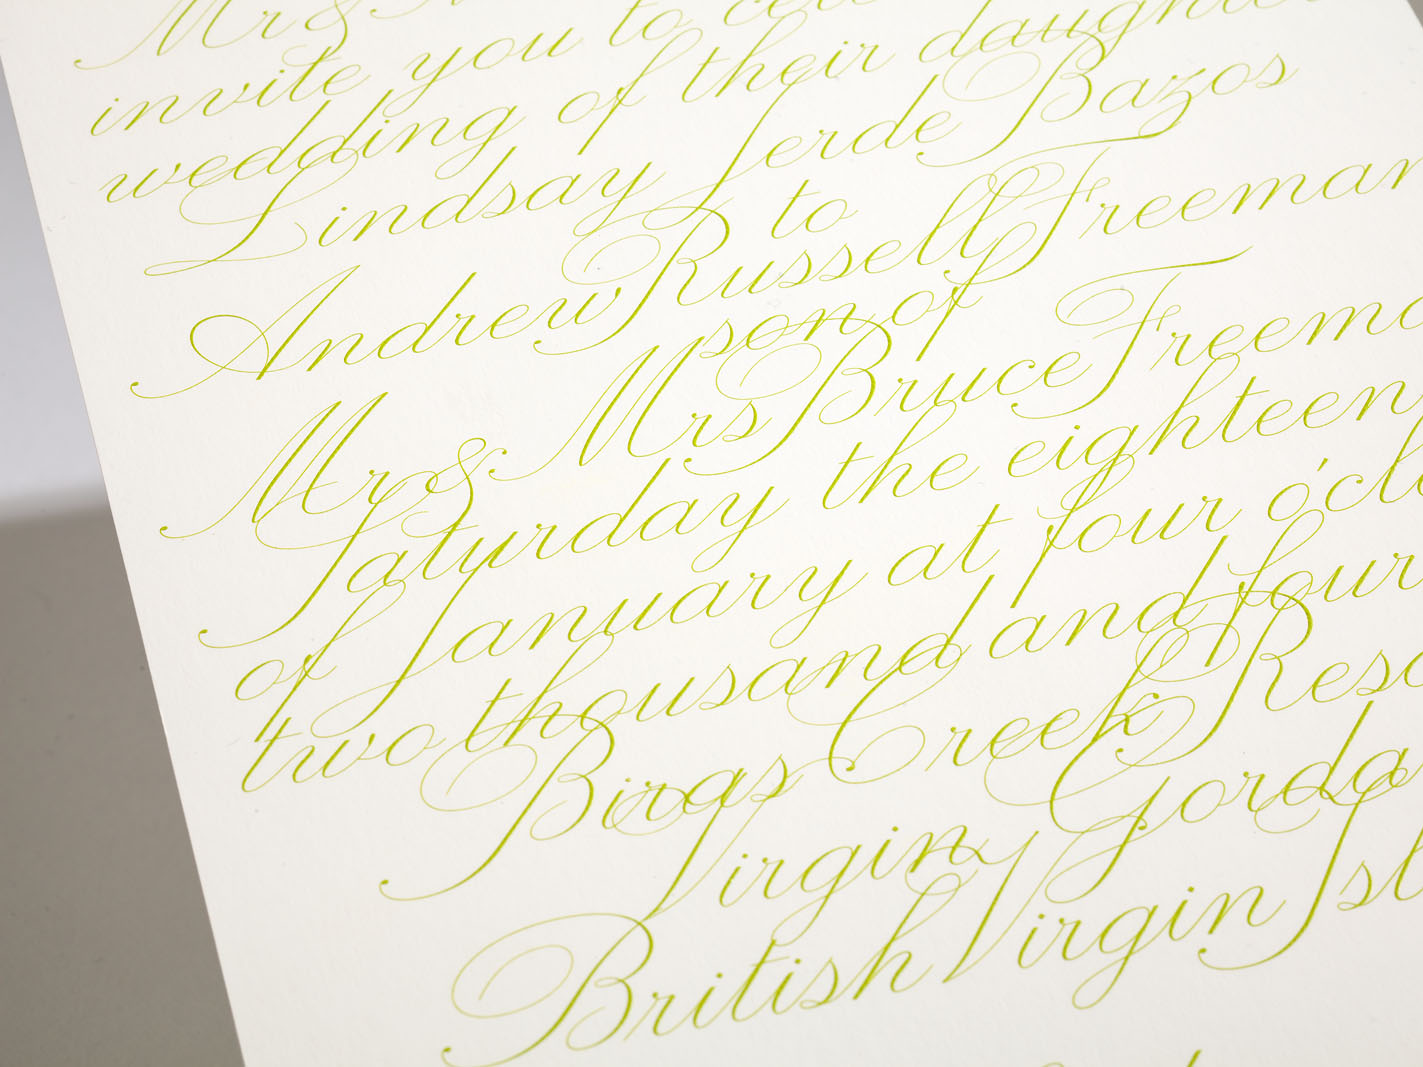 Mr &
invite you to cele
wedding of their daughte
Lindsay Jerde Bazos
to
Andrew Russell Freeman
son of
Mr & Mrs Bruce Freema
Saturday the eighteen
of January at four o'clo
two thousand and four
Biras Creek Reso
Virgin Gorda
British Virgin Isl